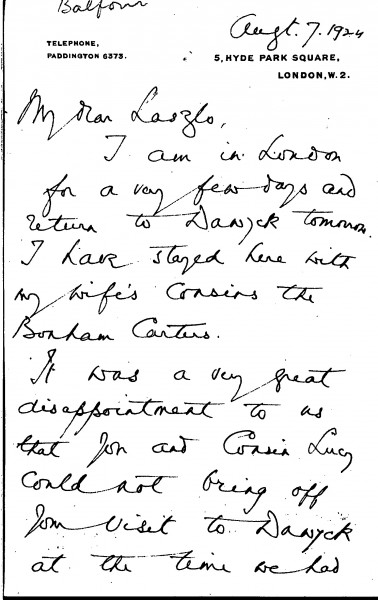 Balfour
Augt. 7. 1924
TELEPHONE,
PADDINGTON 6373.
5, HYDE PARK SQUARE,
LONDON, W.2.
My dear Laszlo,
I am in London
for a very few days and
return to Dawyck tomorrow.
I have stayed here with
my wife's Cousins the
Bonham Carters.
It was a very great
disappointment to us
that you and Cousin Lucy
could not bring off
your visit to Dawyck
at the time we had